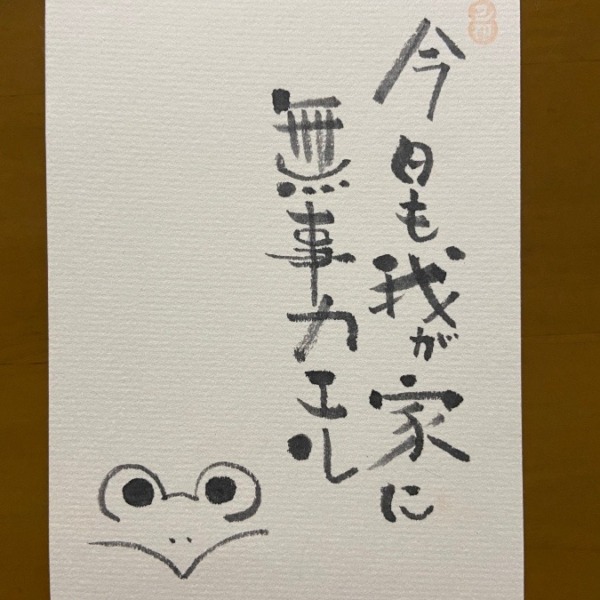 今日も我が家に
無事カエル